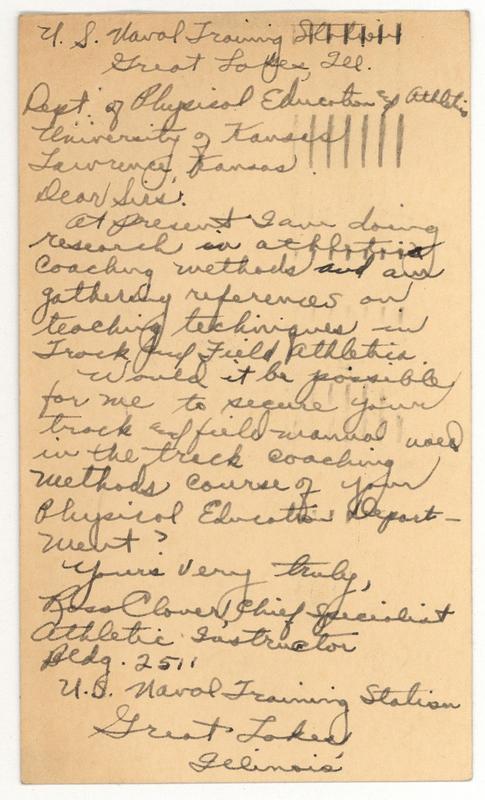 U. S. Naval Training Station
Great Lakes, Ill.
Dept. of Physical Education & Athletics
University of Kansas
Lawrence, Kansas
Dear Sirs:
At present I am doing
research in athletic
coaching methods and am
gathering references on
teaching techniques in
Track and Field Athletics
Would it be possible
for me to secure your
track & field manual used
in the track coaching
methods course of your
Physical Education Depart-
ment?
Yours very truly,
Ross Clover, Chief Specialist
Athletic Instructor
Bldg. 2511
U.S. Naval Training Station
Great Lakes
Illinois